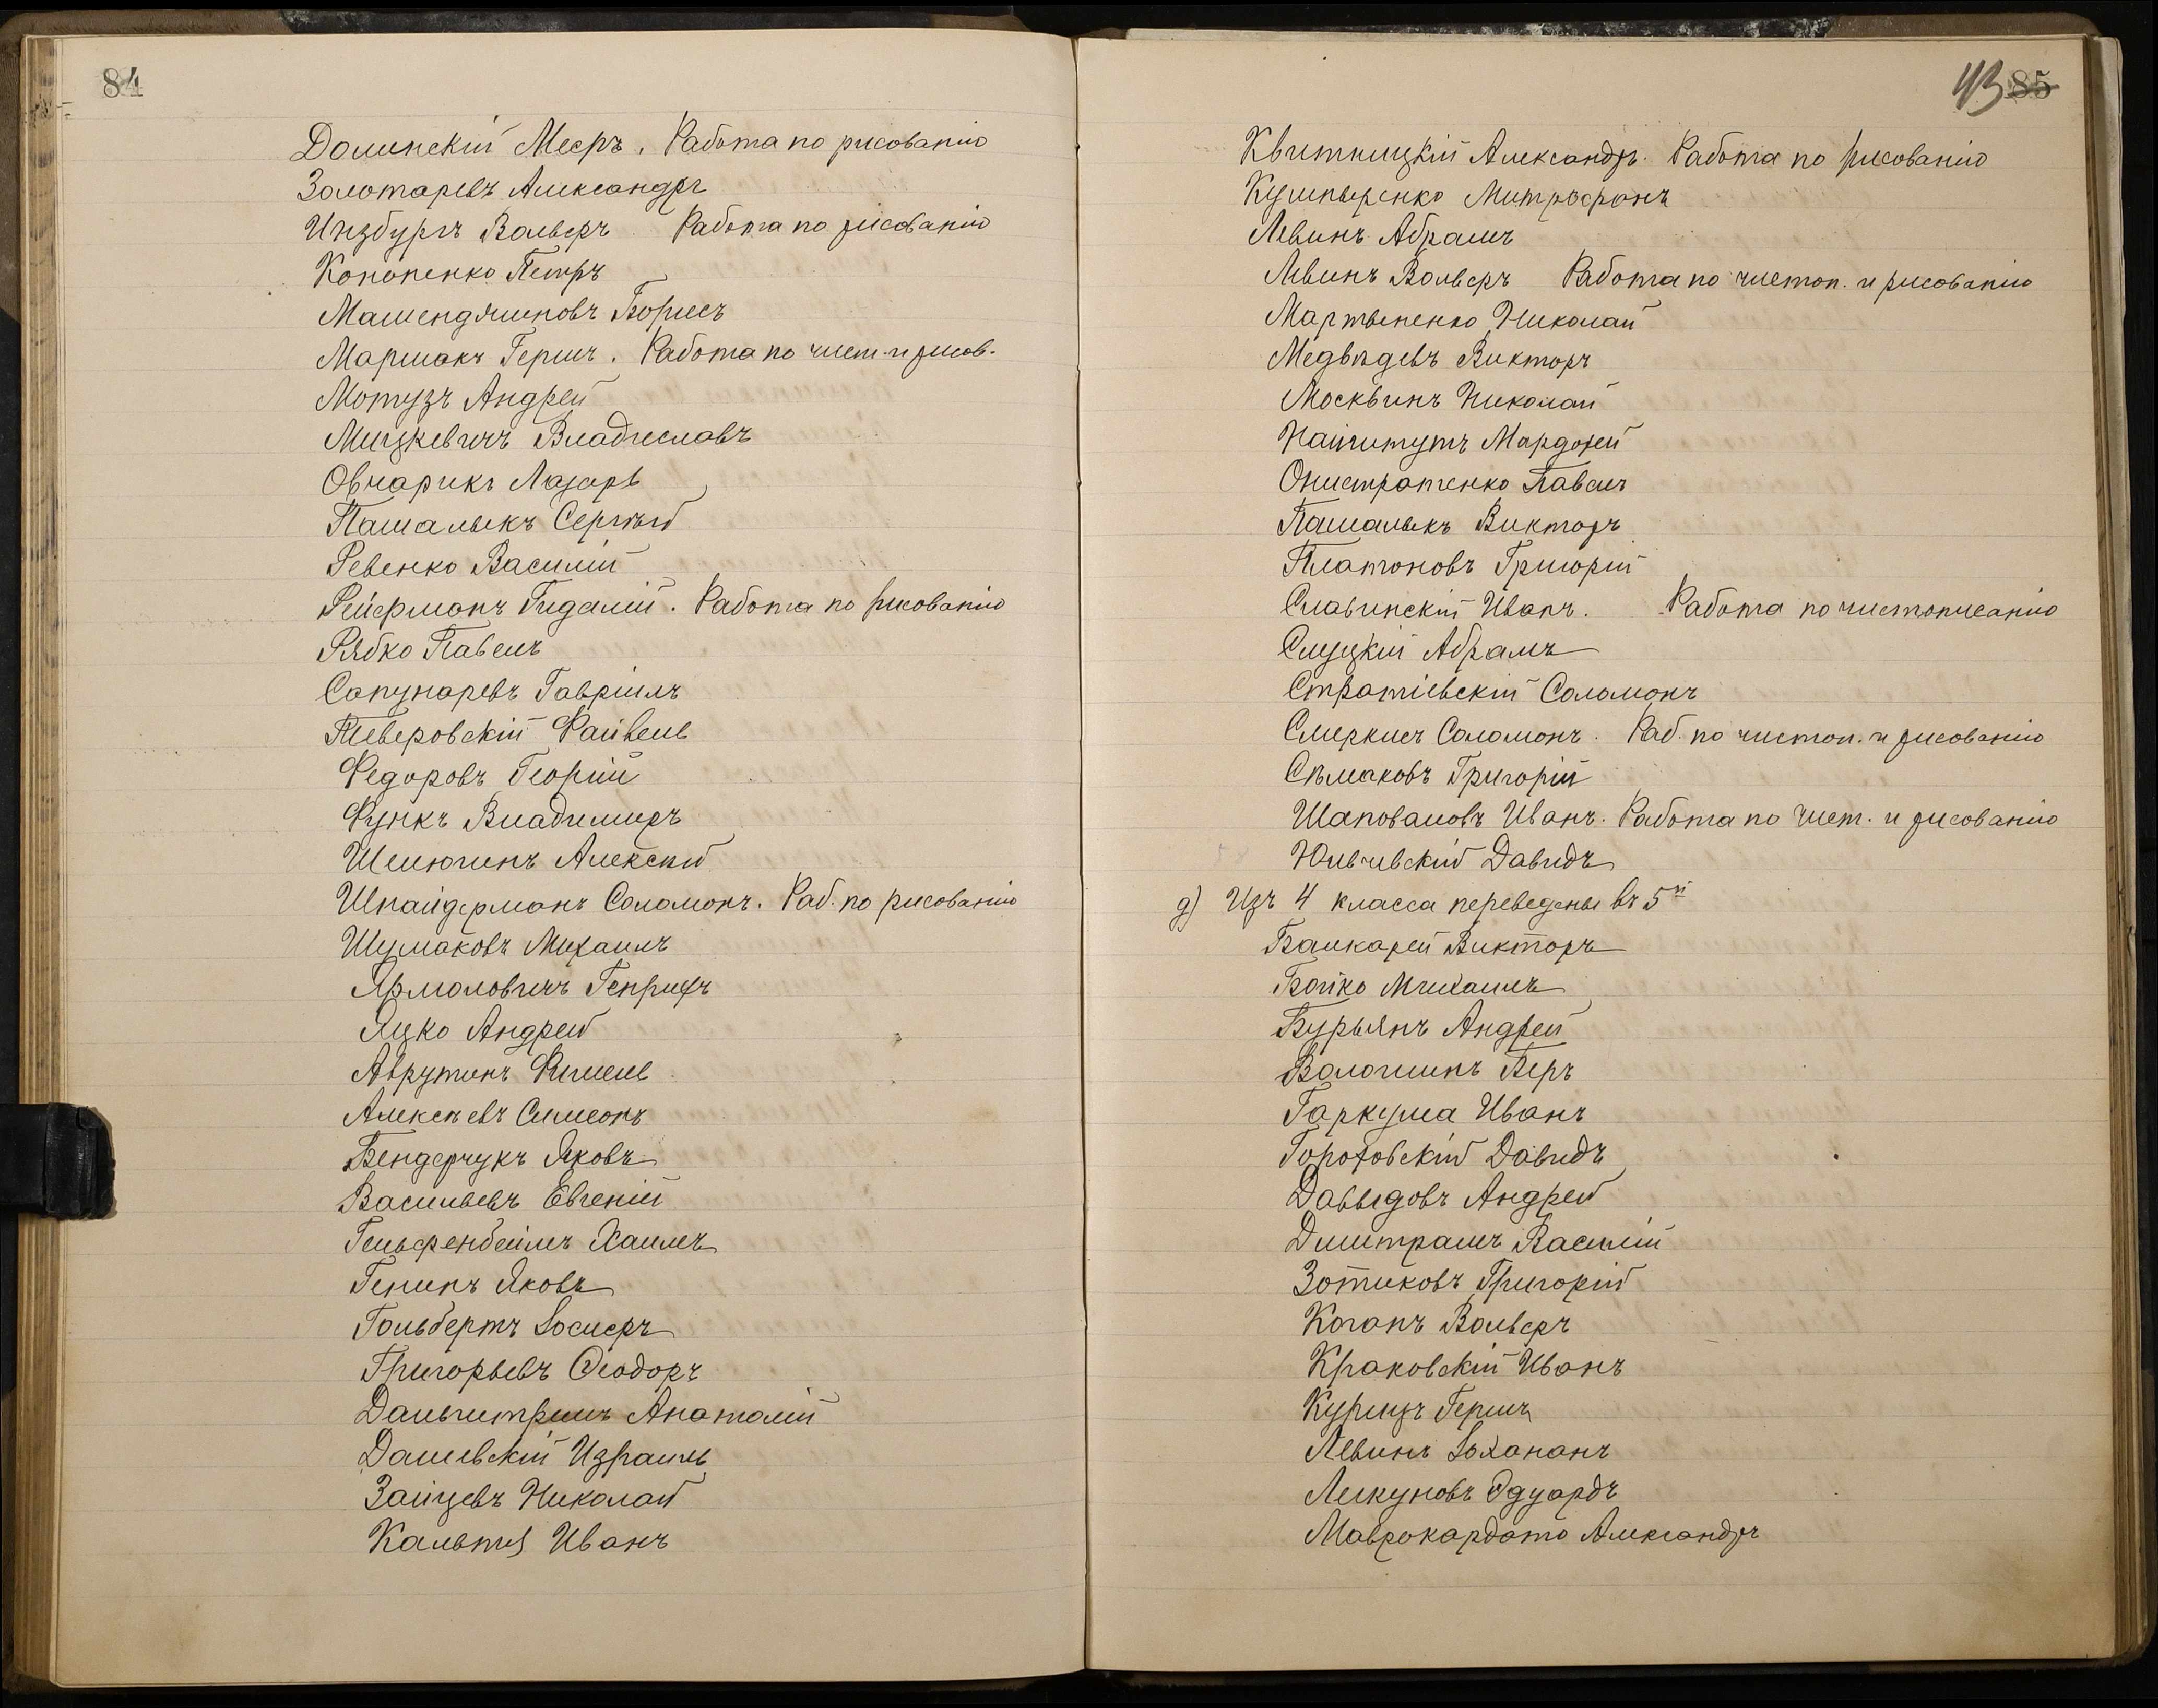 84
Долинскій Мееръ. Работа по рисованію
Золотаревъ Александръ
Инзбургъ Вольфъ Работа по рисованію
Кононенко Петръ
Машендяшновъ Борисъ
Маршакъ Гершъ. Работа по чист. и рисов.
Мотузъ Андрей
Мицкевичъ Владиславъ
Овчарикъ Лазарь
Пашалыкъ Сергѣй
Ревенко Василій
Рейфманъ Гидалій. Работа по рисованію
Рябко Павелъ
Сапунаревъ Гавріилъ
Тиверовскій Файвель
Федоровъ Георгій
Функъ Владимиръ
Шелюгинъ Алексѣй
Шнайдерманъ Соломонъ. Раб. по рисованію
Шумаковъ Михаилъ
Ярмоловичъ Генрихъ
Яцко Андрей
Аврутинъ Фишель
Алексѣевъ Симеонъ
Бендерчукъ Яковъ
Васильевъ Евгеній
Гельфенбеймъ Хаимъ
Генинъ Яковъ
Гольбертъ Іосифъ
Григорьевъ Ѳеодоръ
Дальчитримъ Анатолій
Дашевскій Израиль
Зайцевъ Николай
Кальтя Иванъ
43 85
Квитницкій Александръ. Работа по рисованію
Кушныренко Митрофанъ
Левинъ Абрамъ
Левинъ Вольфъ Работа по чистоп. и рисованію
Мартыненко Николай
Медвѣдевъ Викторъ
Москвинъ Николай
Найчитутъ Мардохей
Онистратенко Павелъ
Пашалыкъ Викторъ
Платоновъ Григорій
Славинскій Иванъ. Работа по чистописанію
Слуцкій Абрамъ
Стратіевскій Соломонъ
Смеркисъ Соломонъ. Раб. по чистоп. и рисованію
Сѣмаковъ Григорій
Шаповаловъ Иванъ. Работа по чист. и рисованію
Юльчевскій Давидъ
д) Изъ 4 класса переведены въ 5й
Балкарей Викторъ
Бойко Михаилъ
Бурьянъ Андрей
Волочинъ Беръ
Гаркуша Иванъ
Гороховскій Давидъ
Давыдовъ Андрей
Димитрашъ Василій
Зотиковъ Григорій
Коганъ Вольфъ
Краковскій Иванъ
Курицъ Гершъ
Левинъ Іохананъ
Лешкуновъ Эдуардъ
Маврокардато Александръ